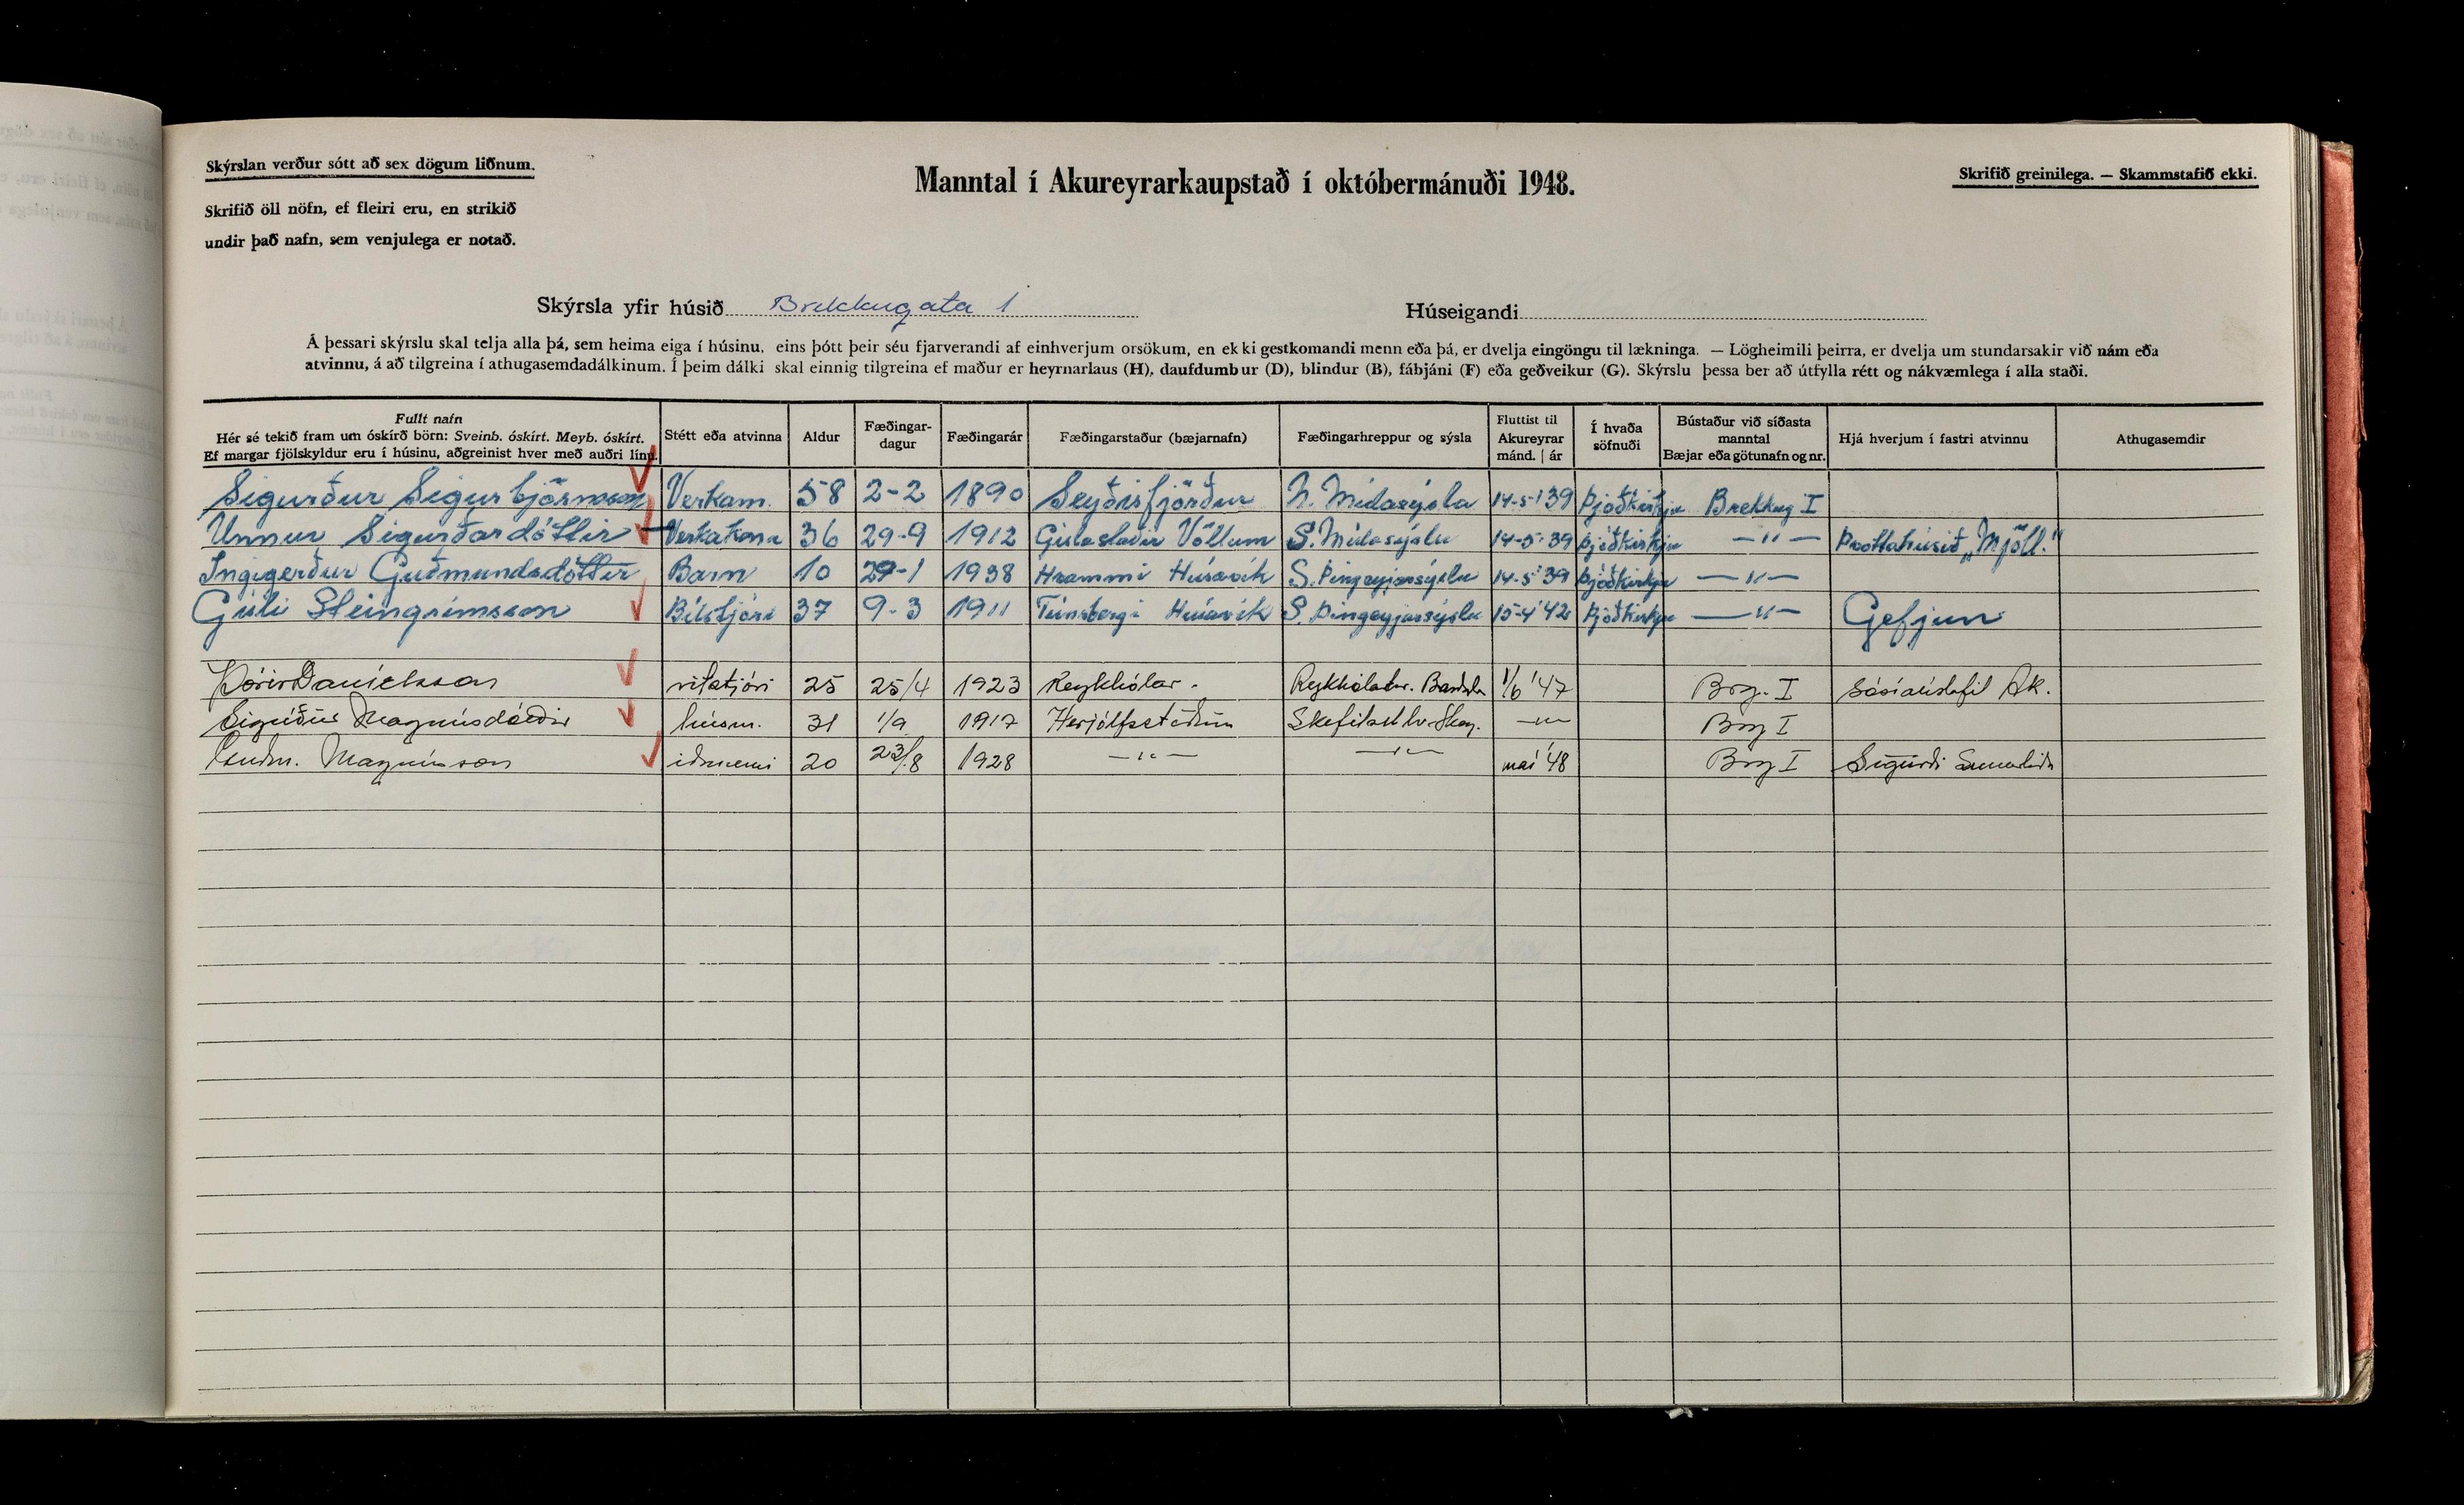 Skýrslan verður sótt að sex dögum liðnum.
Manntal í Akureyrarkaupstað í októbermánuði 1948.
Skrifið greinilega. — Skammstafið ekki.
Skrifið öll nöfn, ef fleiri eru, en strikið
undir það nafn, sem venjulega er notað.
Skýrsla yfir húsið Brekkugata 1
Húseigandi
Á þessari skýrslu skal telja alla þá, sem heima eiga í húsinu, eins þótt þeir séu fjarverandi af einhverjum orsökum, en ekki gestkomandi menn eða þá, er dvelja eingöngu til lækninga. — Lögheimili þeirra, er dvelja um stundarsakir við nám eða
atvinnu, á að tilgreina í athugasemdadálkinum. Í þeim dálki skal einnig tilgreina ef maður er heyrnarlaus (H), daufdumbur (D), blindur (B), fábjáni (F) eða geðveikur (G). Skýrslu þessa ber að útfylla rétt og nákvæmlega í alla staði.
Fullt nafn
Hér sé tekið fram um óskírð börn: Sveinb. óskírt. Meyb. óskírt.
Ef margar fjölskyldur eru í húsinu, aðgreinist hver með auðri línu.
Stétt eða atvinna
Aldur
Fæðingar-
dagur
Fæðingarár
Fæðingarstaður (bæjarnafn)
Fæðingarhreppur og sýsla
Fluttist til
Akureyrar
mánd. | ár
Í hvaða
söfnuði
Bústaður við síðasta
manntal
Bæjar eða götunafn og nr.
Hjá hverjum í fastri atvinnu
Athugasemdir
Sigurður Sigurbjörnsson Verkam. 58 2-2 1890 Seyðisfjörður N. Múlasýsla 14-5-'39 Þjóðkirkju Brekkug I
Unnur Sigurðardóttir Verkakona 36 29-9 1912 Gíslastaðir Völlum S. Múlasýslu 14-5-'39 Þjóðkirkju —"— Þvottahúsið „Mjöll."
Ingigerður Guðmundsdóttir Barn 10 29-1 1938 Hvammi Húsavík S. Þingeyjarsýslu 14-5-'39 Þjóðkirkju —"—
Gísli Steingrímsson Bílstjóri 37 9-3 1911 Túnsbergi Húsavík S. Þingeyjarsýslu 15-4-'42 Þjóðkirkju —"— Gefjun
Þórir Daníelsson ritstjóri 25 25/4 1923 Reykhólar. 1/6 '47 Brg. I Ak.
Sigríður Magnúsdóttir húsm. 31 1/9 1917 Herjólfsstöðum —"— Brg I
Guðm. Magnússon iðnnemi 20 23/8 1928 —"— —"— maí '48 Brg I Sigurði